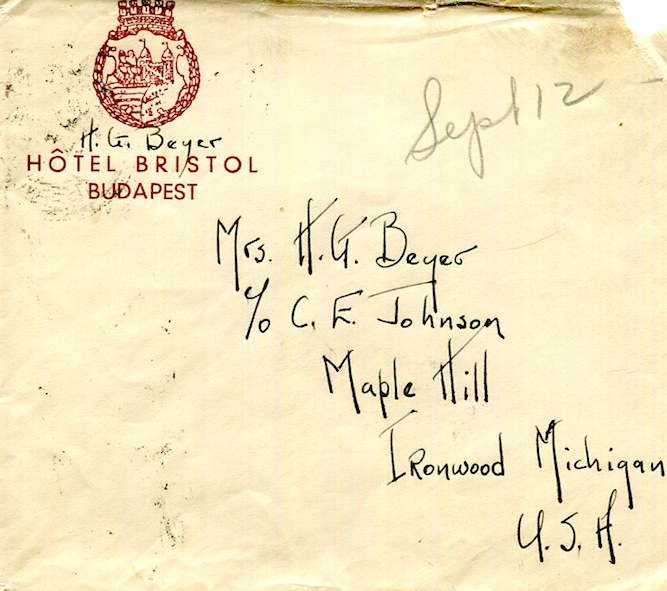 Sept 12
H. G. Beyer
HÔTEL BRISTOL
BUDAPEST
Mrs. H. G. Beyer
c/o C. E. Johnson
Maple Hill
Ironwood Michigan
U. S. A.